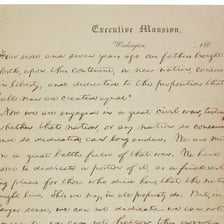 Executive Mansion,
Washington, 186
Four score and seven years ago our fathers brought
forth, upon this continent, a new nation, conceiv
in liberty, and dedicated to the proposition that
"all men are created equal"
Now we are engaged in a great civil war, testing
whether that nation, or any nation so conceived
and so dedicated, can long endure. We are met
on a great battle field of that war. We have
come to dedicate a portion of it, as a final rest
ing place for those who died here, that the nation
might live. This we may, in all propriety do. But, in
larger sense, we can not dedicate — we can not